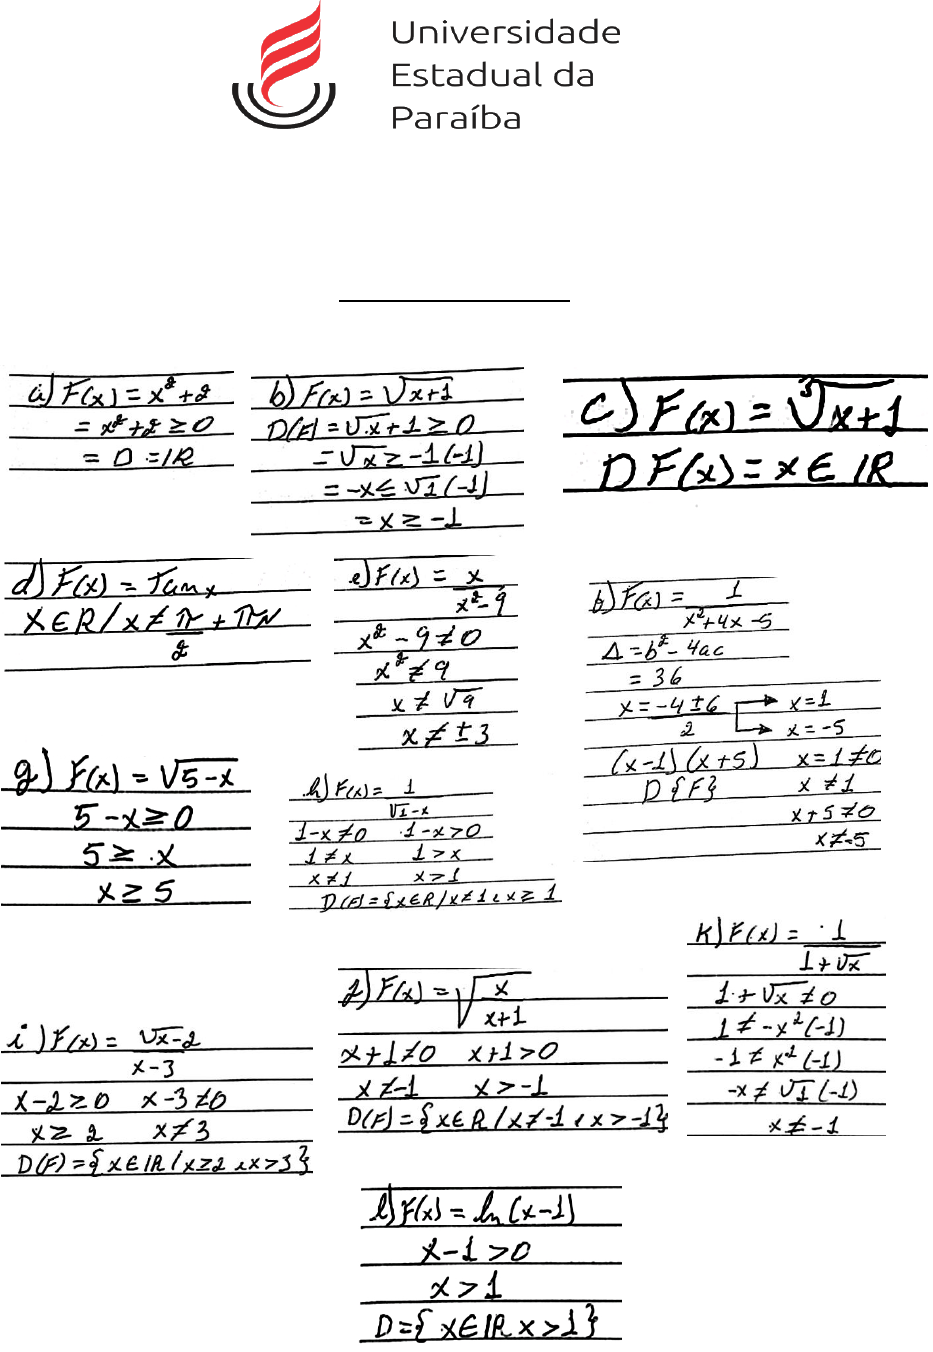 Universidade
Estadual da
Paraíba
a) F(x) = x² + 2
= x² + 2 ≥ 0
= D = IR
b) F(x) = √x+1
D(F) = √x + 1 ≥ 0
= √x ≥ -1 (-1)
= -x ≤ √1 (-1)
= x ≥ -1
c) F(x) = ∛x+1
D F(x) = x ∈ IR
d) F(x) = Tan x
X ∈ R / x ≠ π/2 + πN
e) F(x) = x/(x² - 9)
x² - 9 ≠ 0
x² ≠ 9
x ≠ √9
x ≠ ± 3
f) F(x) = 1/(x² + 4x - 5)
Δ = b² - 4ac
= 36
x = (-4 ± 6)/2 → x = 1
→ x = -5
(x-1) (x+5) x = 1 ≠ 0
D {F} x ≠ 1
x + 5 ≠ 0
x ≠ -5
g) F(x) = √5-x
5 - x ≥ 0
5 ≥ x
x ≥ 5
h) F(x) = 1/√1-x
1-x ≠ 0 1-x > 0
1 ≠ x 1 > x
x ≠ 1 x > 1
D(F) = {x ∈ R / x ≠ 1 e x ≥ 1
i) F(x) = √x-2/(x-3)
x - 2 ≥ 0 x - 3 ≠ 0
x ≥ 2 x ≠ 3
D(F) = {x ∈ IR / x ≥ 2 e x > 3}
j) F(x) = √(x/(x+1))
x + 1 ≠ 0 x + 1 > 0
x ≠ -1 x > -1
D(F) = {x ∈ R / x ≠ -1 e x > -1}
k) F(x) = 1/(1 + √x)
1 + √x ≠ 0
1 ≠ -x² (-1)
-1 ≠ x² (-1)
-x ≠ √1 (-1)
x ≠ -1
l) F(x) = ln (x-1)
x - 1 > 0
x > 1
D = {x ∈ IR x > 1}